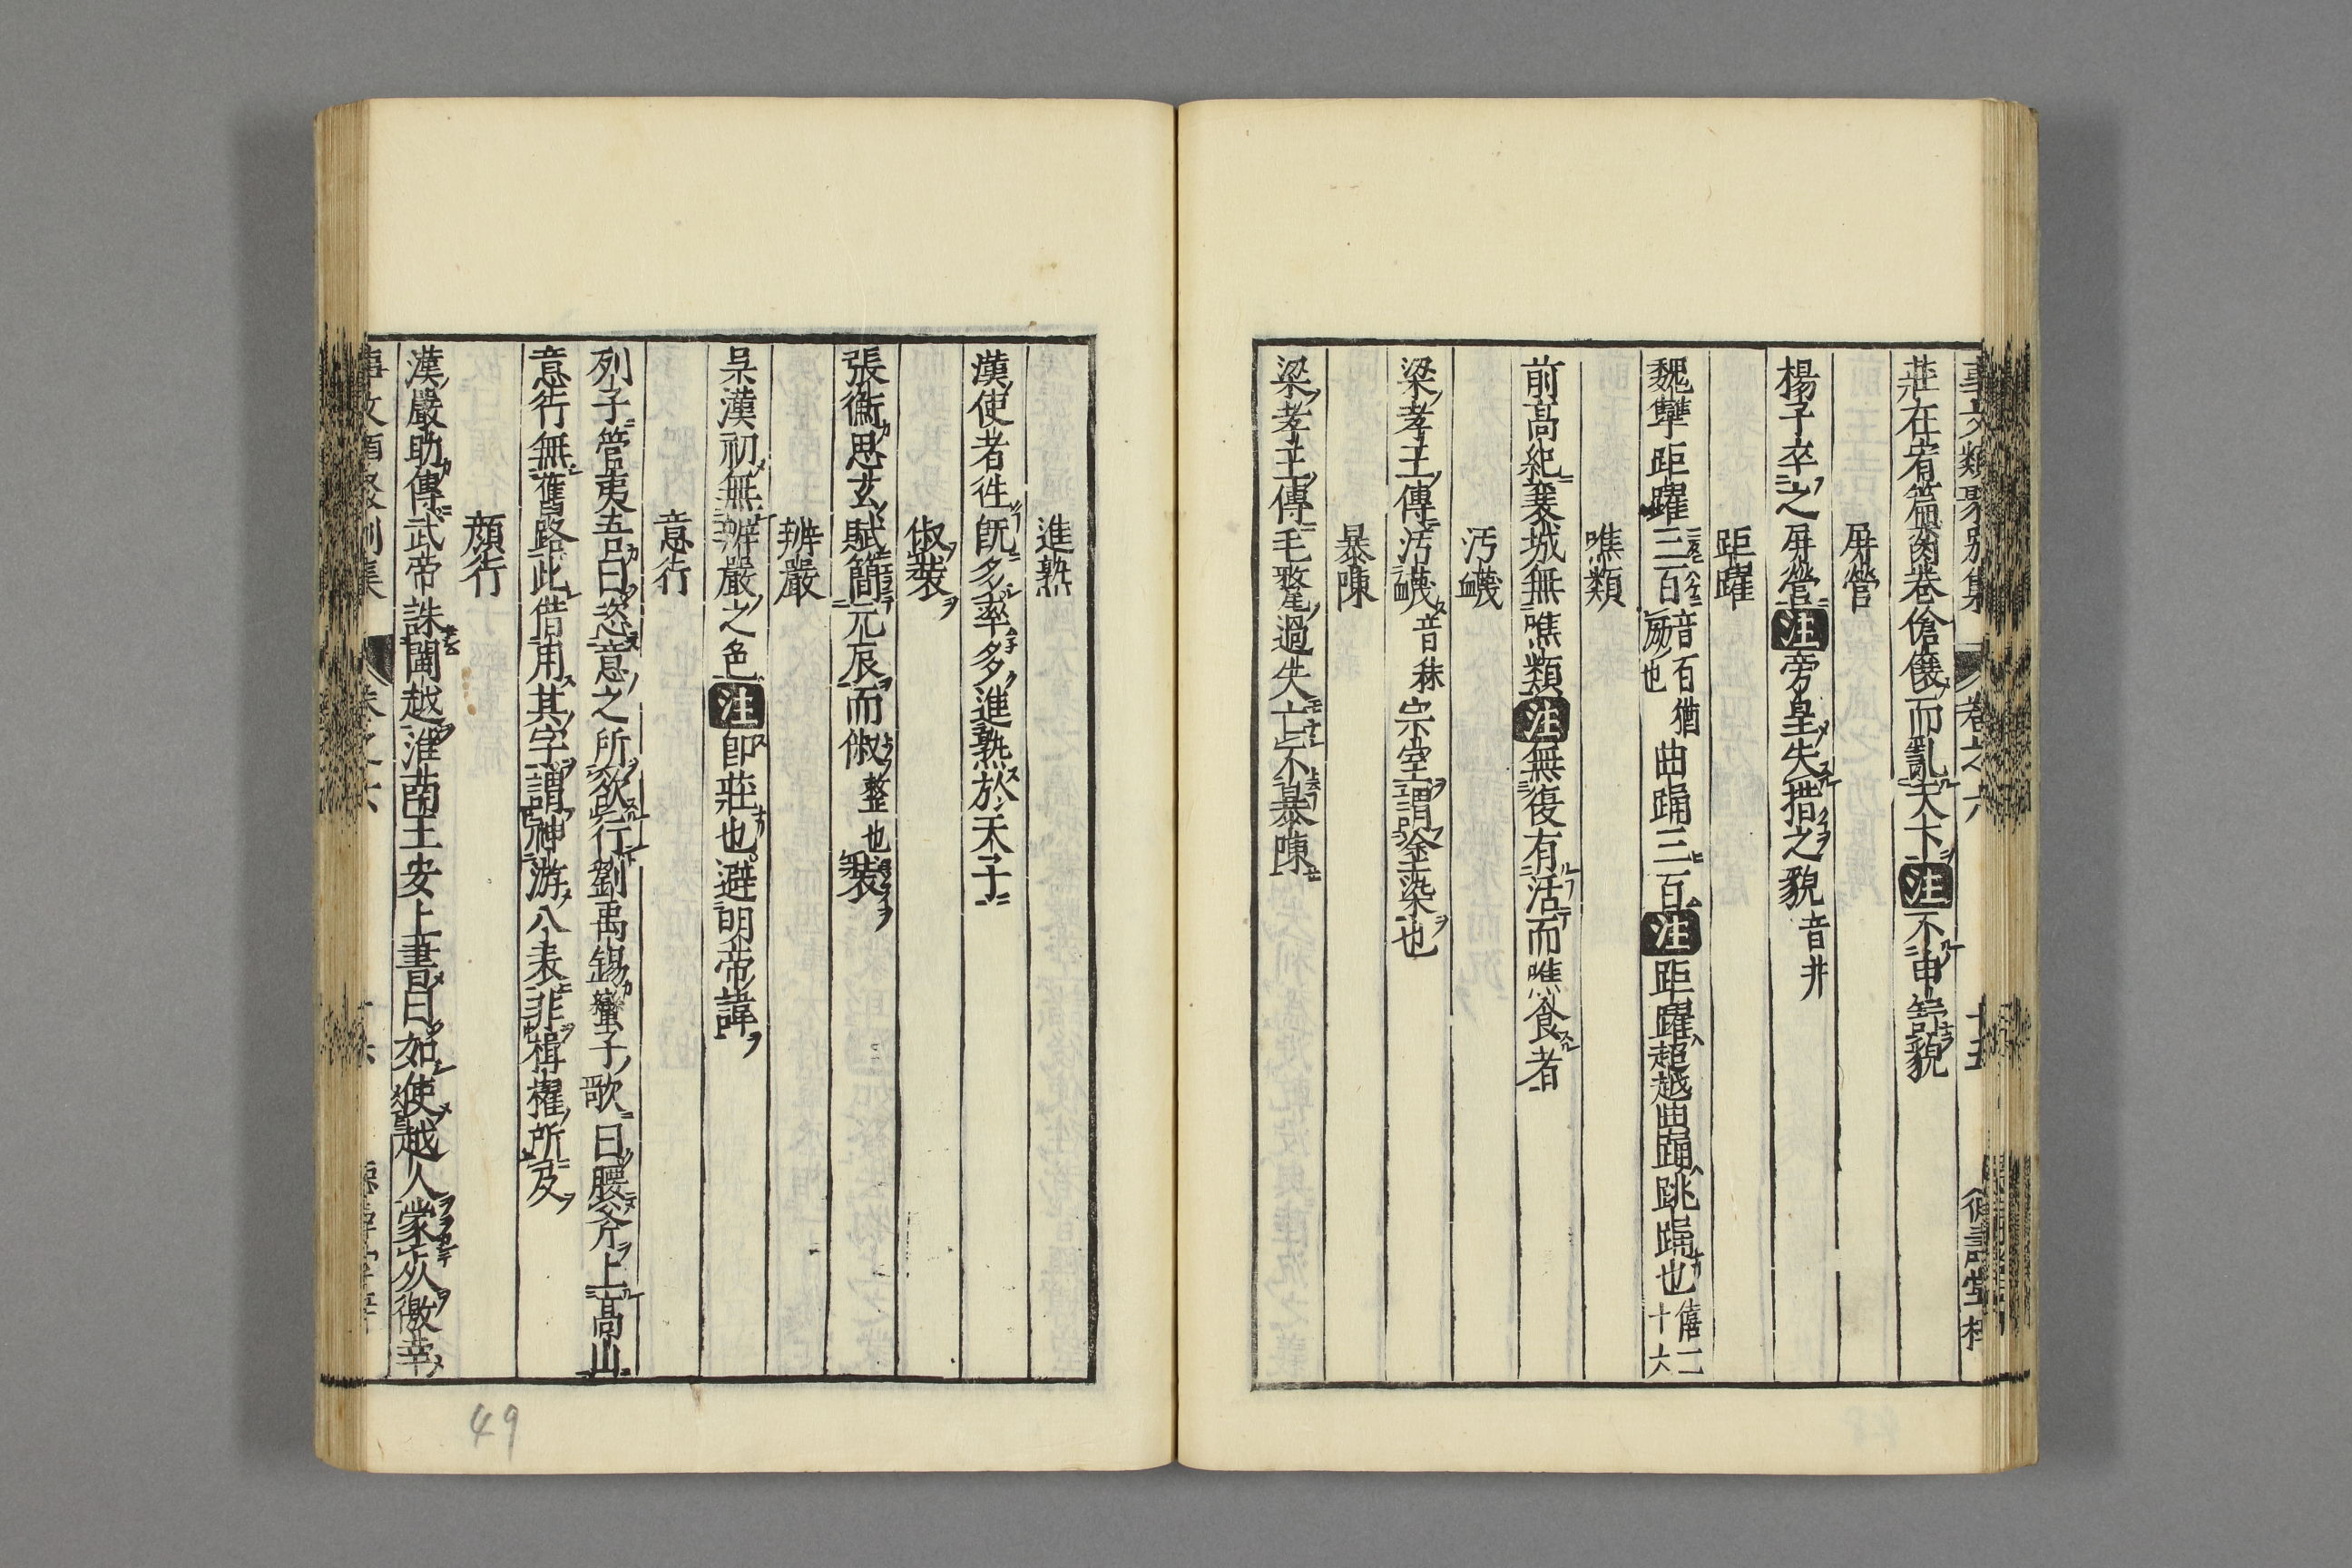 事文類聚別集 卷之六 十五
莊在宥篇臠卷傖儴而亂天下注不申舒貌
屏營
楊子卒之屏營注旁皇失措之貌音井
距躍
魏犨距躍三百音百猶厲也曲踊三百注距躍超越曲踊跳踊也僖二十六
噍類
前高紀襄城無噍類注無復有活而噍食者
汚衊
梁孝王傳汚衊音秣宗室謂塗染也
暴陳
梁孝王傳毛騺過失亡不暴陳
進熟
漢使者徃既多率多進熟於天子
俶裝
張衡思玄賦簡元辰而俶整也裝
辨嚴
吴漢初無辨嚴之色注即莊也避明帝諱
意行
列子管夷吾曰恣意之所欲行劉禹錫蠻子歌曰腰斧上高山
意行無舊路此借用其字謂神游八表非楫櫂所及
顔行
漢嚴助傳武帝誅閩越淮南王安上書曰如使越人蒙死徼幸